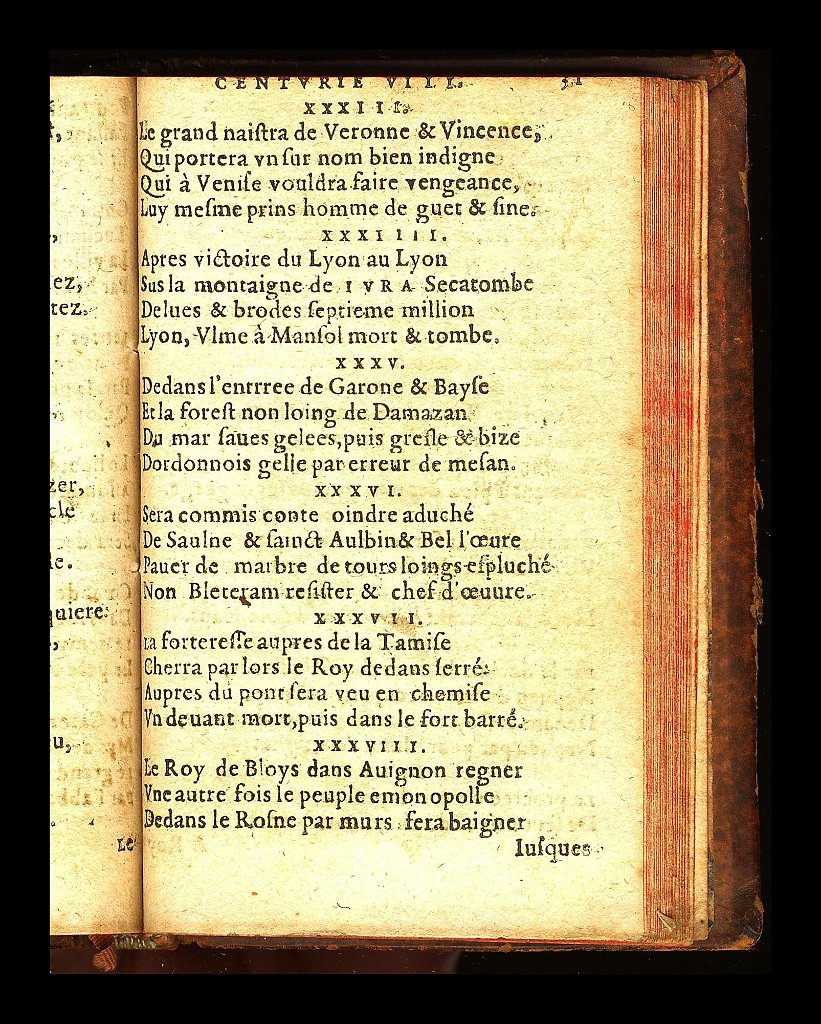 CENTVRIE VIII.
XXXIII.
Le grand naiſtra de Veronne & Vincence,
Qui portera vn ſur nom bien indigne
Qui à Veniſe vouldra faire vengeance,
Luy meſme prins homme de guet & ſine.
XXXIIII.
Apres victoire du Lyon au Lyon
Sus la montaigne de IVRA Secatombe
Delues & brodes ſeptieme million
Lyon, Vlme à Manſol mort & tombe.
XXXV.
Dedans l'entrree de Garone & Bayſe
Et la foreſt non loing de Damazan
Du mar ſaues gelees, puis greſle & bize
Dordonnois gelle par erreur de meſan.
XXXVI.
Sera commis conte oindre aduché
De Saulne & ſainct Aulbin & Bel l'œure
Pauer de marbre de tours loings eſpluché
Non Bleteram reſiſter & chef d'œuure.
XXXVII.
La fortereſſe aupres de la Tamiſe
Cherra par lors le Roy dedans ſerré:
Aupres du pont ſera veu en chemiſe
Vn deuant mort, puis dans le fort barré.
XXXVIII.
Le Roy de Bloys dans Auignon regner
Vne autre fois le peuple emonopolle
Dedans le Roſne par murs ſera baigner
Iuſques
ez,
tez.
zer,
cle
e.
quiere:
u,
Le